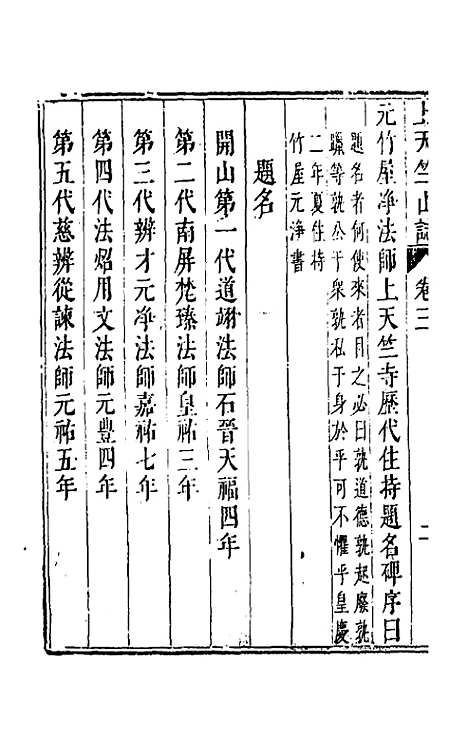 上天竺山誌 卷三 二
元竹屋淨法師上天竺寺歷代住持題名碑序曰
題名者何使來者目之必曰孰道德孰起廢孰
躐等孰公于衆孰私于身於乎可不懼乎皇慶
二年夏住持
竹屋元淨書
題名
開山第一代道翊法師石晉天福四年
第二代南屏梵臻法師皇祐三年
第三代辨才元淨法師嘉祐七年
第四代法炤用文法師元豐四年
第五代慈辨從諫法師元祐五年